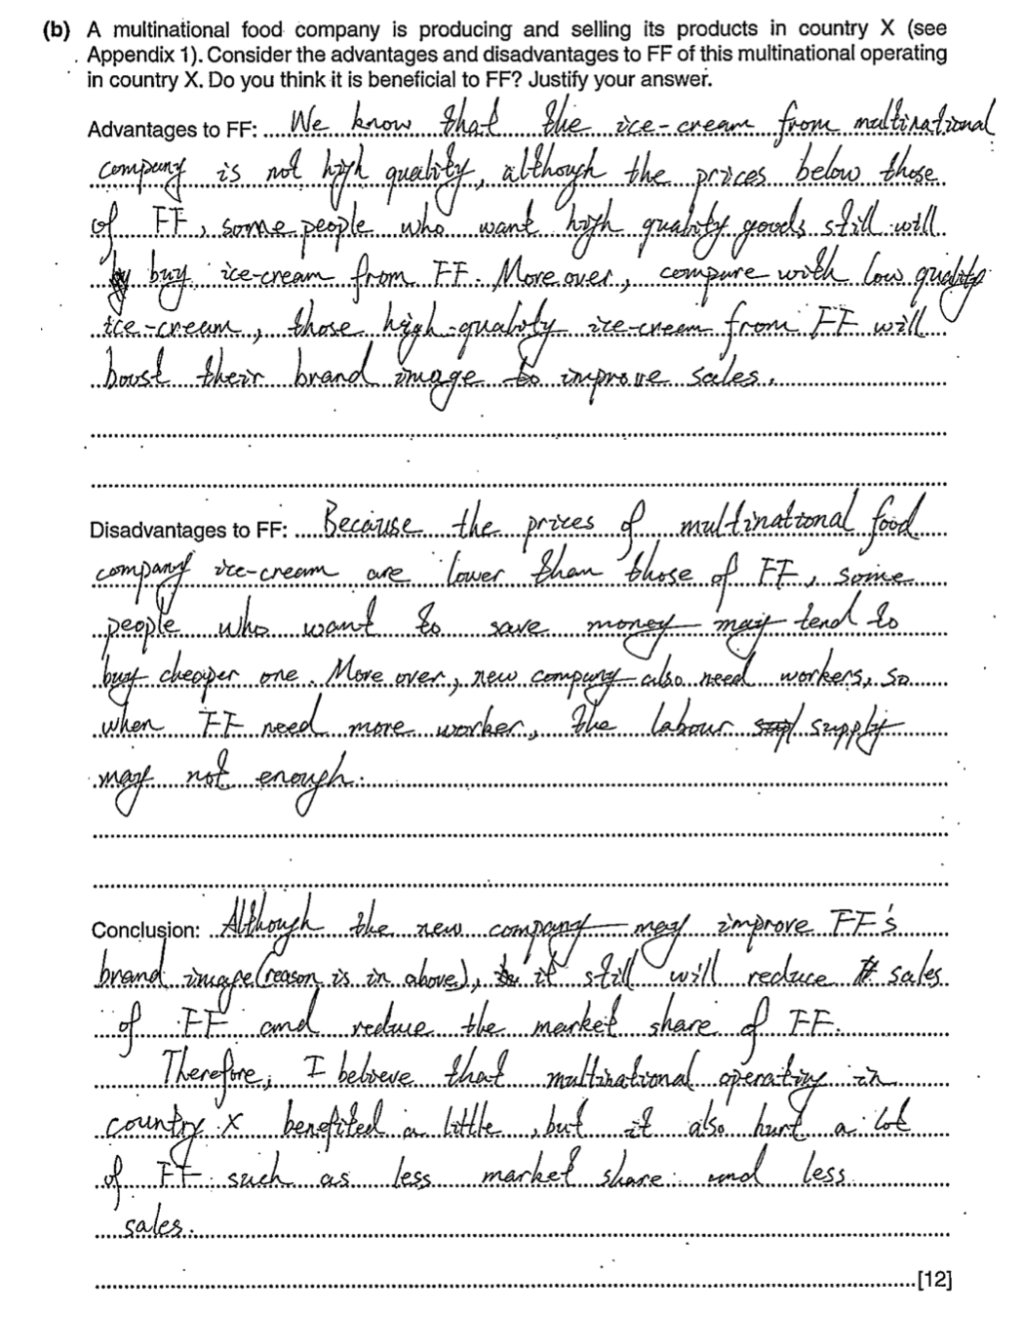 (b) A multinational food company is producing and selling its products in country X (see
Appendix 1). Consider the advantages and disadvantages to FF of this multinational operating
in country X. Do you think it is beneficial to FF? Justify your answer.
Advantages to FF: We know that the ice-cream from multinational
company is not high quality, although the prices below those
of FF, some people who want high quality goods still will
buy ice-cream from FF. More over, compare with low quality
ice-cream, those high-quality ice-cream from FF will
boust their brand image to improve sales.
Disadvantages to FF: Because the prices of multinational food
company ice-cream are lower than those of FF, some
people who want to save money may tend to
buy cheaper one. More over, new company also need workers, so
when FF need more worker, the labour supply
may not enough.
Conclusion: Although the new company may improve FF's
brand image (reason is in above), it still will reduce sales
of FF and reduce the market share of FF.
Therefore, I believe that multinational operating in
country X benefited a little, but it also hurt a lot
of FF such as less market share and less
sales.
[12]